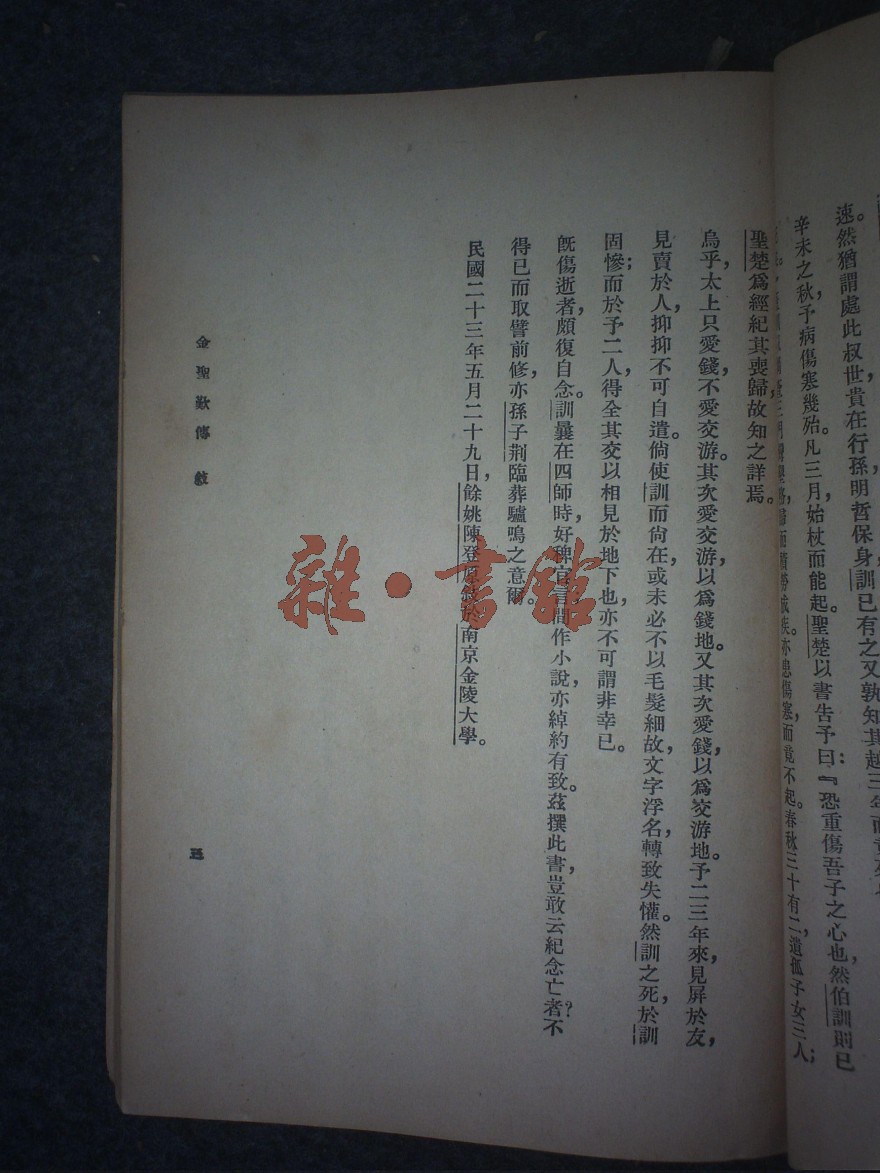 速。然猶謂處此叔世貴在行孫明哲保身訓已有之又孰知其越三年而
辛未之秋，予病傷寒幾殆。凡三月，始杖而能起。聖楚以書告予曰：『恐重傷吾子之心也，然伯訓則已
而竟不起。春秋三十有二，遺孤子女三人；
聖楚爲經紀其喪歸，故知之詳焉。
烏乎，太上只愛錢，不愛交游。其次愛交游，以爲錢地。又其次愛錢，以爲交游地。予二三年來，見屏於友，
見賣於人，抑抑不可自遣。倘使訓而尙在，或未必不以毛髮細故，文字浮名，轉致失懽。然訓之死，於訓
固慘；而於予二人，得全其交以相見於地下也，亦不可謂非幸已。
旣傷逝者，頗復自念。訓曩在四師時，好稗官言，間作小說，亦綽約有致。茲撰此書，豈敢云紀念亡者？不
得已而取譬前修，亦孫子荆臨葬驢鳴之意爾。
民國二十三年五月二十九日，餘姚陳登原敍於南京金陵大學。
金聖歎傳 敍
五
雜·書館